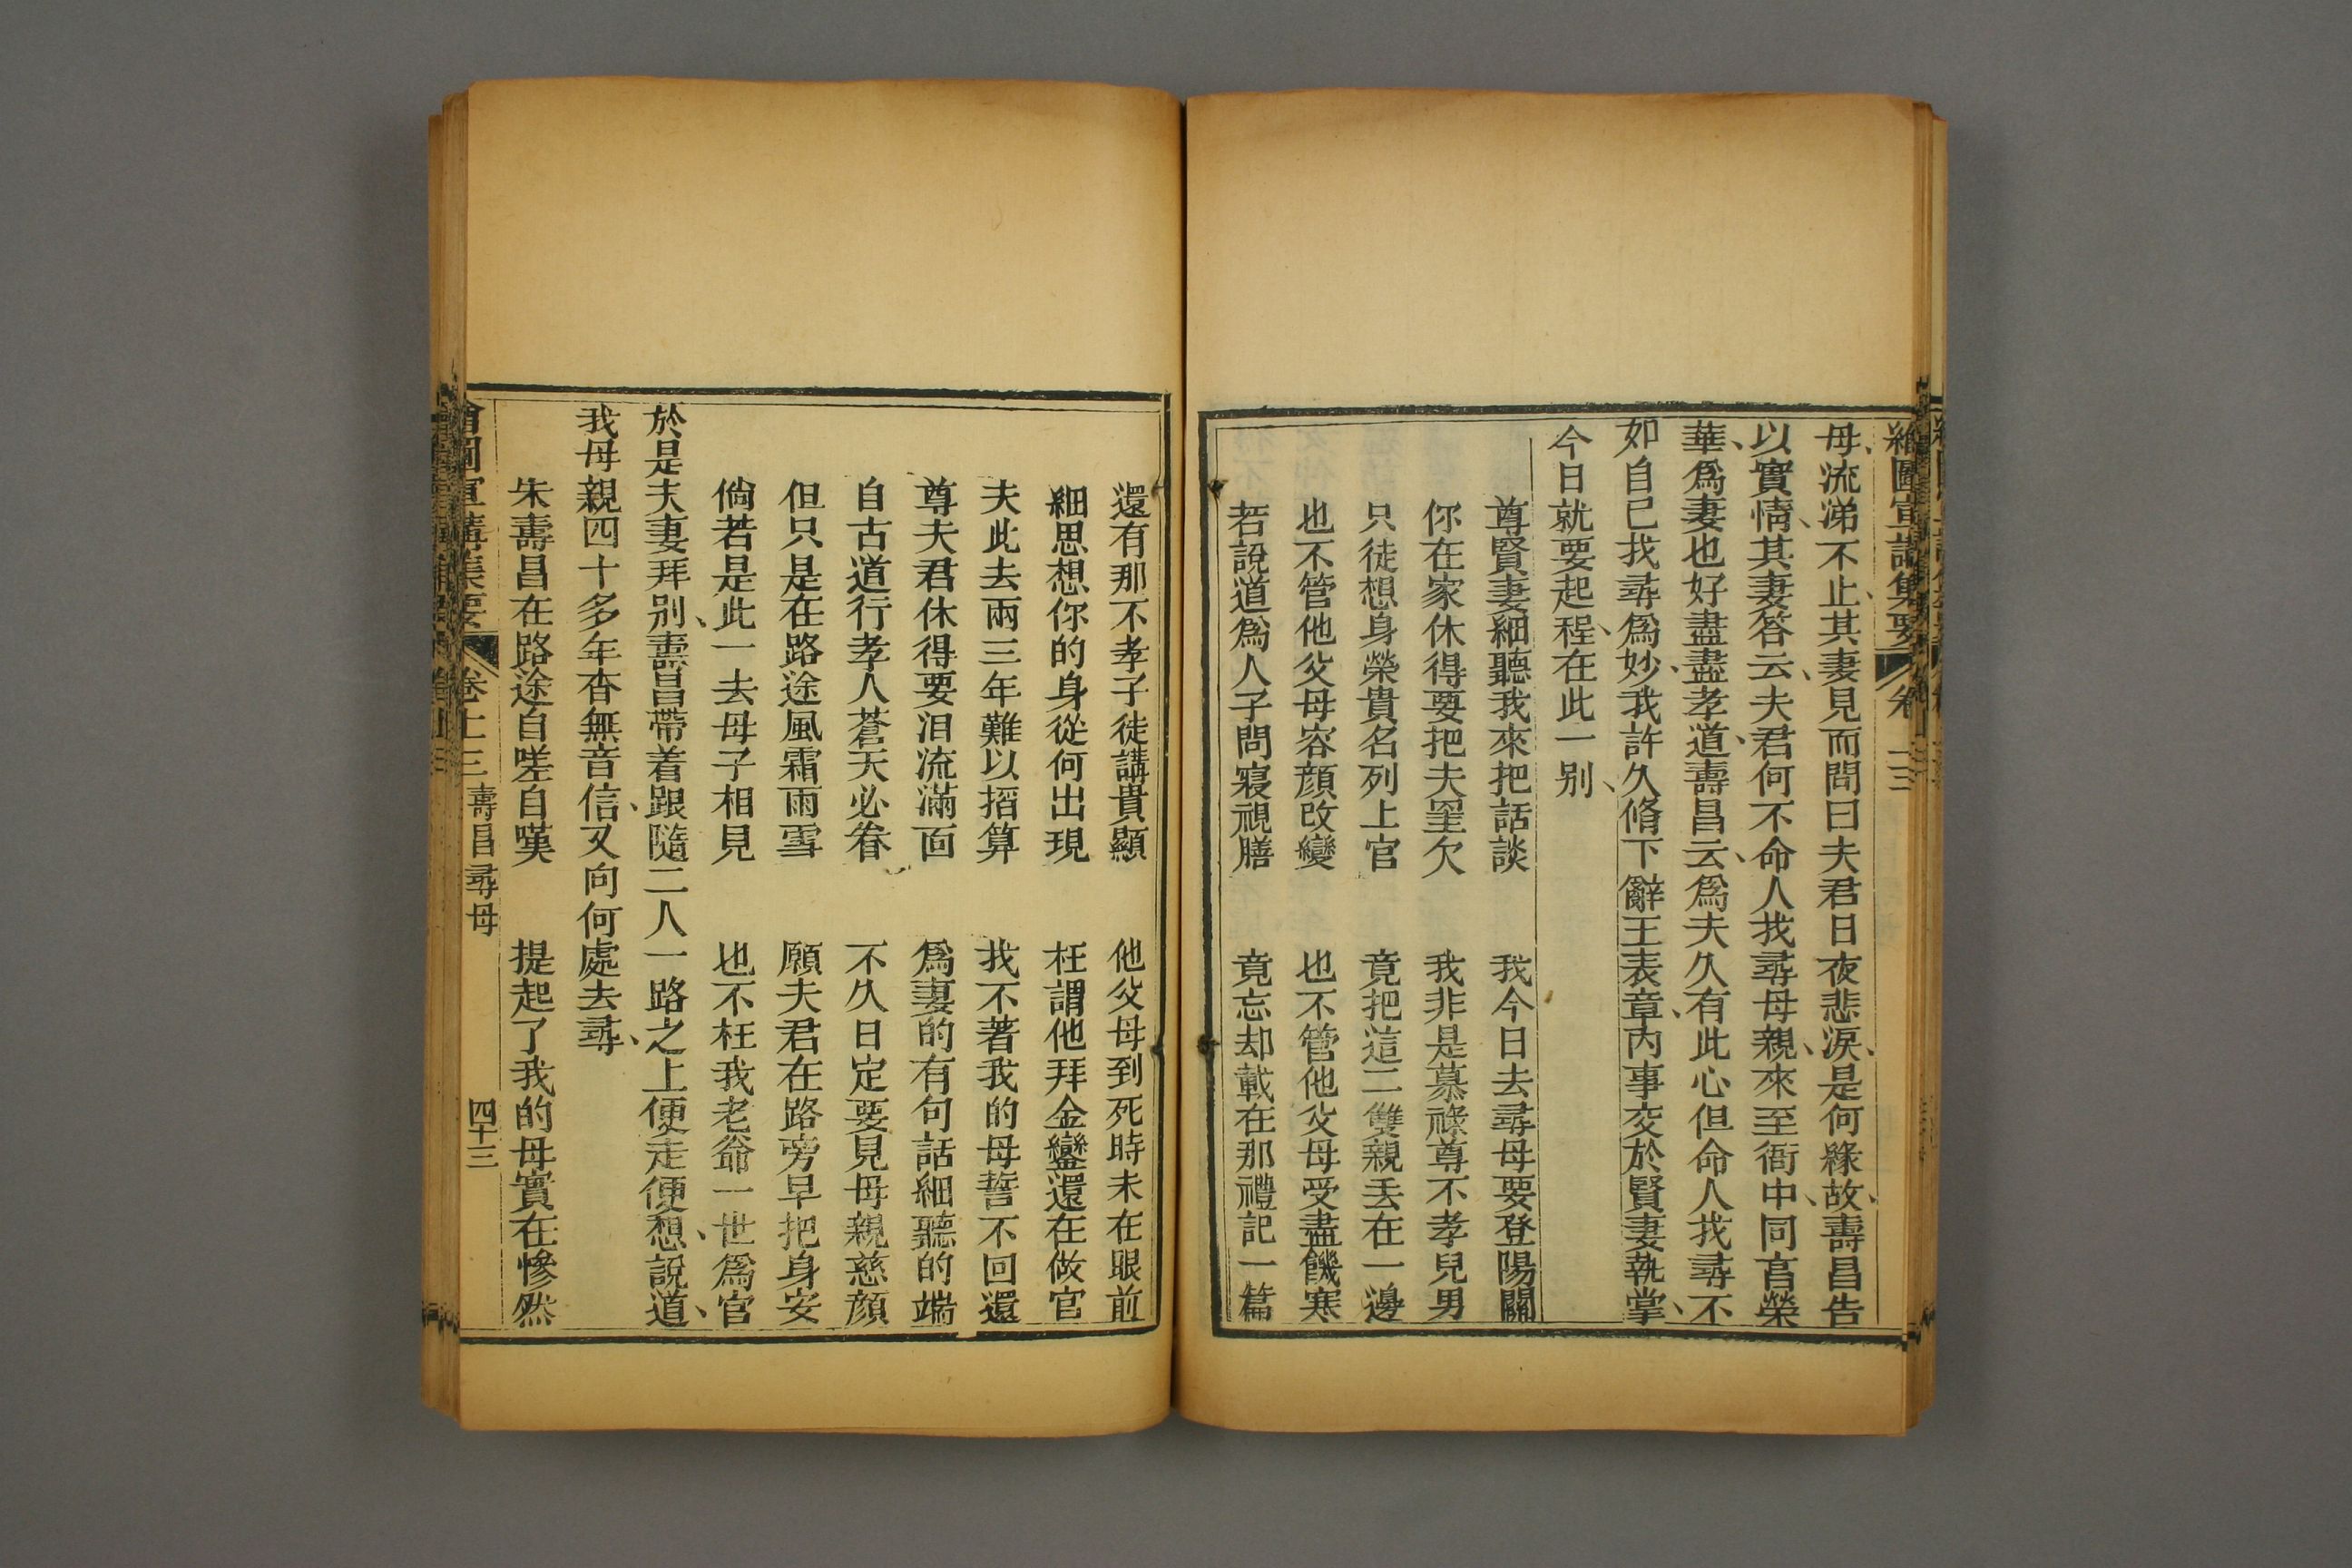 母流涕不止其妻見而問曰夫君日夜悲淚是何緣故壽昌告
以實情其妻答云夫君何不命人找尋母親來至衙中同享榮
華爲妻也好盡盡孝道壽昌云爲夫久有此心但命人找尋不
如自己找尋爲妙我許久脩下辭王表章內事交於賢妻執掌
今日就要起程在此一别
尊賢妻細聽我來把話談　我今日去尋母要登陽關
你在家休得要把夫罣欠　我非是慕祿尊不孝兒男
只徒想身榮貴名列上官　竟把這二雙親丢在一邊
也不管他父母容顔改變　也不管他父母受盡饑寒
若說道爲人子問寢視膳　竟忘却載在那禮記一篇
還有那不孝子徒講貴顯　他父母到死時未在眼前
細思想你的身從何出現　枉謂他拜金鑾還在做官
夫此去兩三年難以搯算　我不著我的母誓不回還
尊夫君休得要泪流滿面　爲妻的有句話細聽的端
自古道行孝人蒼天必眷　不久日定要見母親慈顔
但只是在路途風霜雨雪　願夫君在路旁早把身安
倘若是此一去母子相見　也不枉我老爺一世爲官
於是夫妻拜别壽昌帶着跟隨二人一路之上便走便想說道
我母親四十多年杳無音信又向何處去尋
朱壽昌在路途自嗟自嘆　提起了我的母實在慘然
卷十三　壽昌尋母　四十三